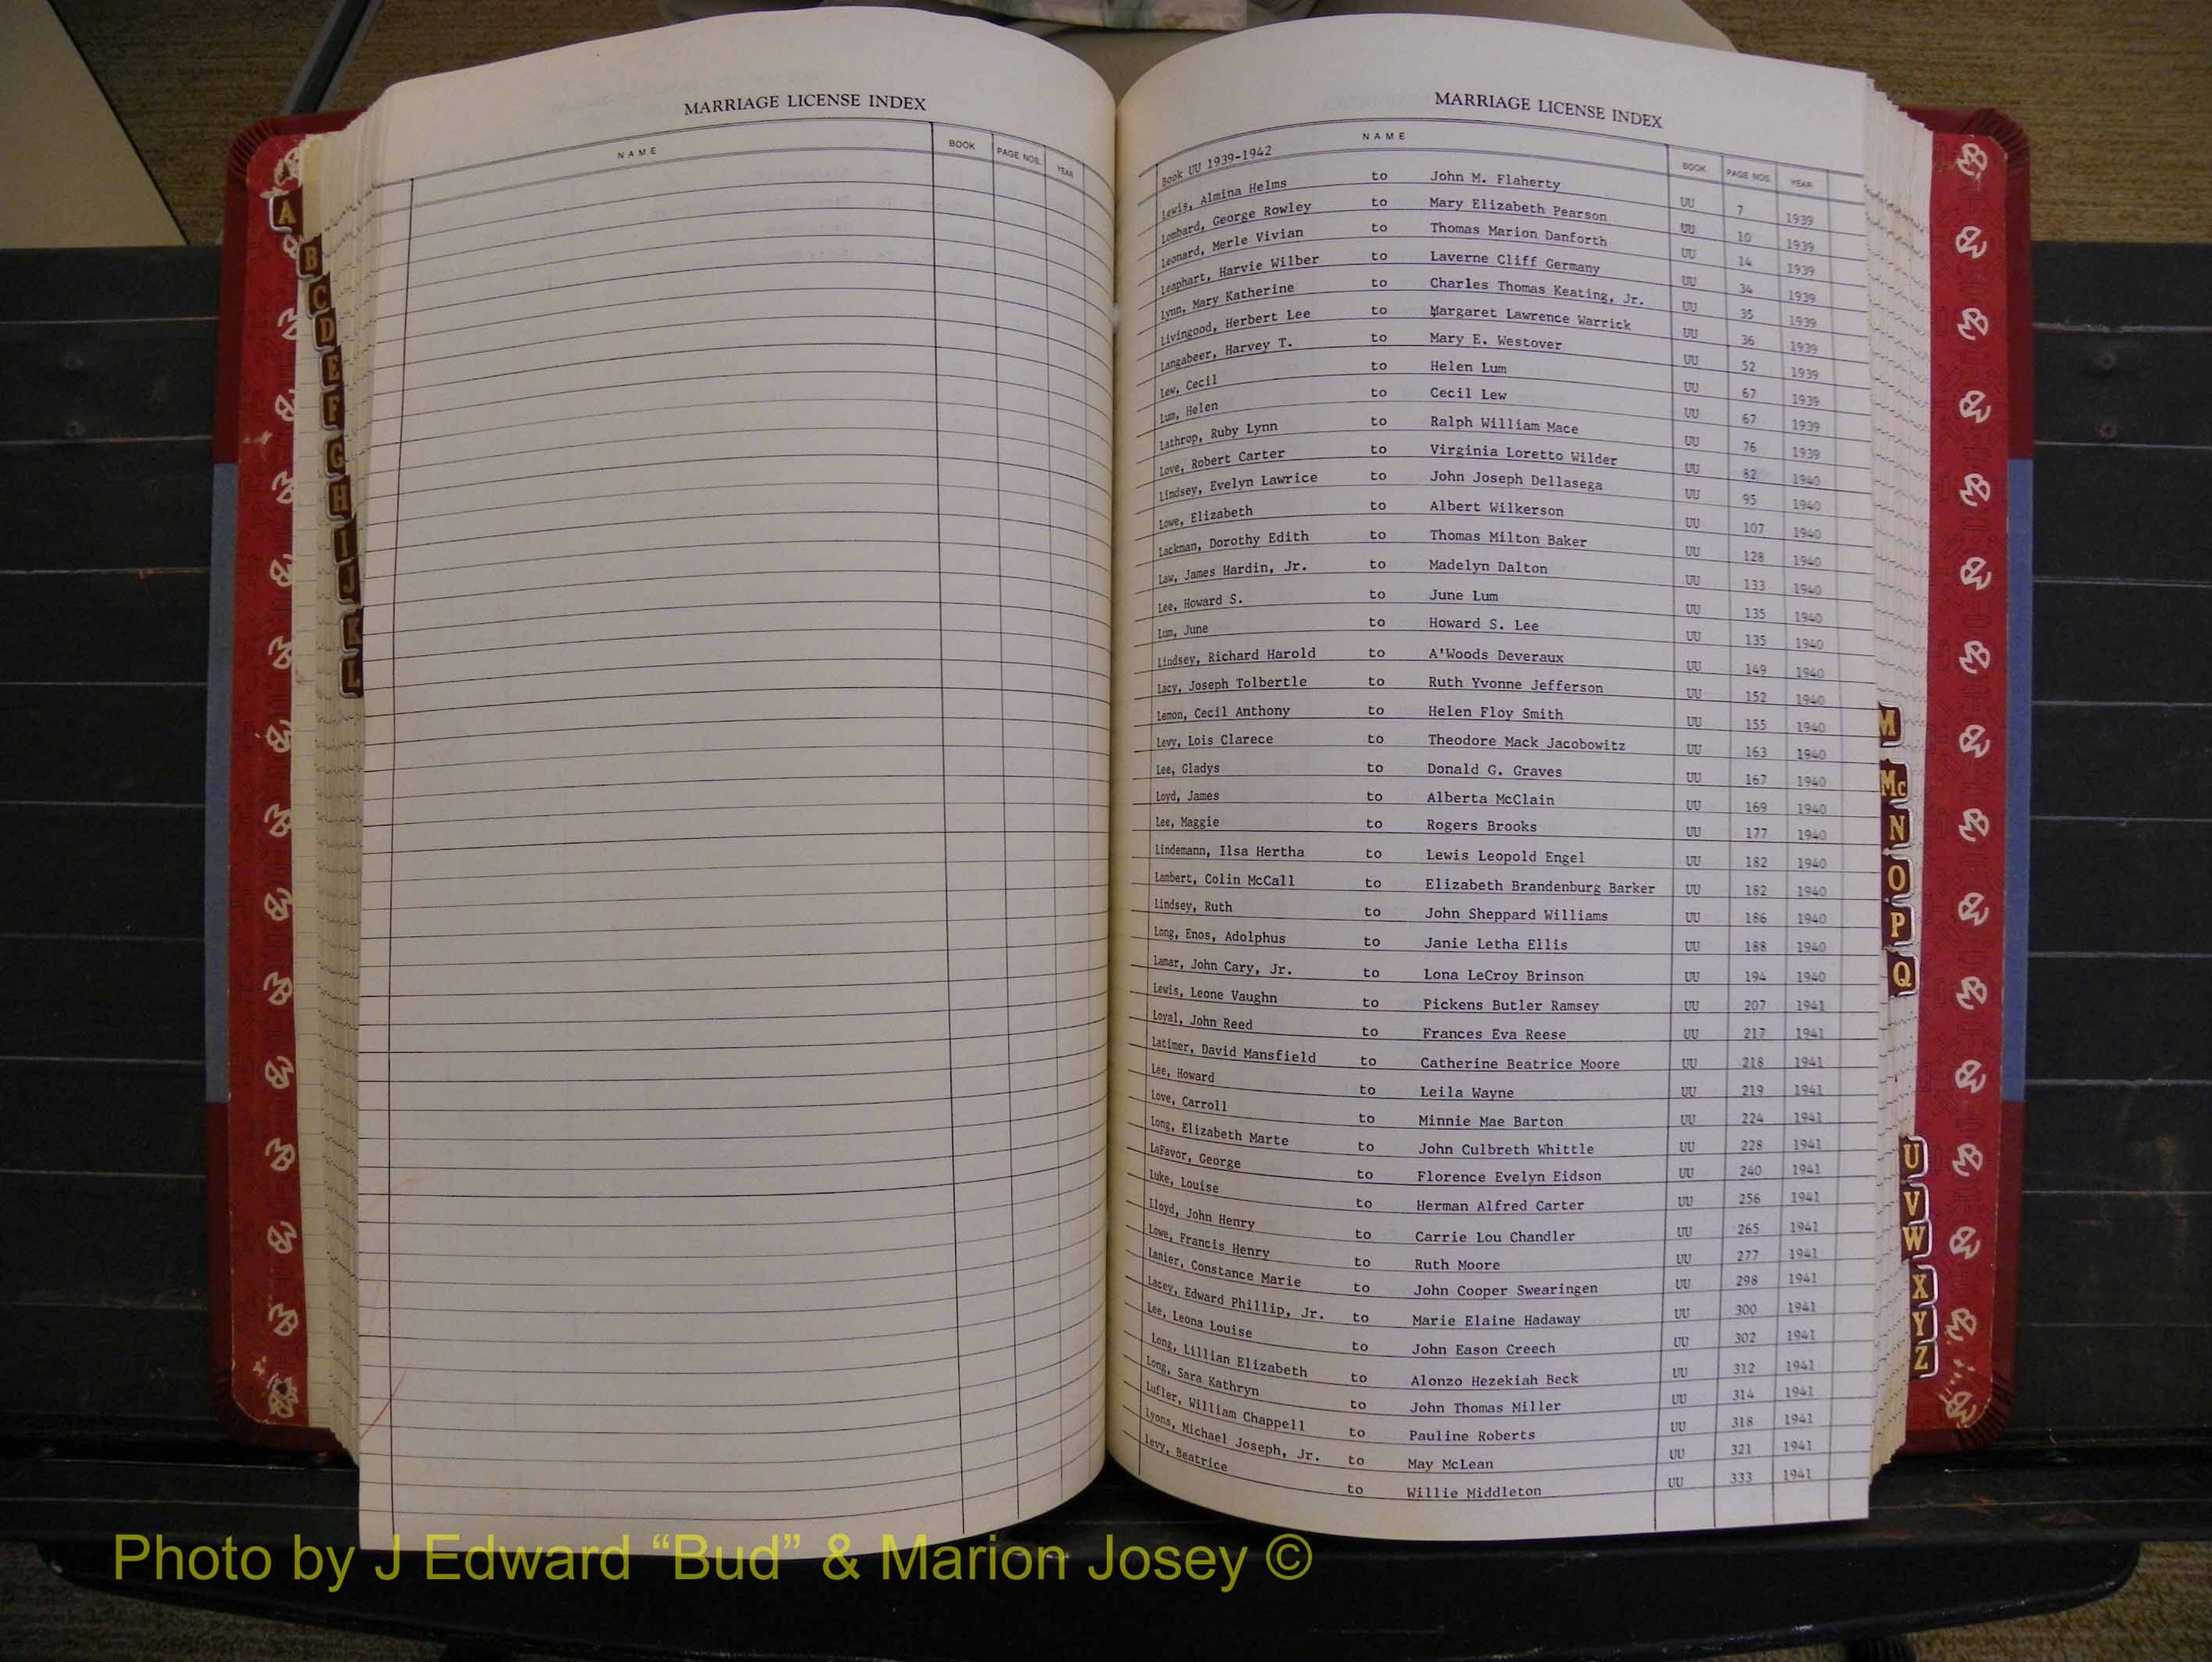 MARRIAGE LICENSE INDEX
NAME BOOK PAGE NOS. YEAR
MARRIAGE LICENSE INDEX
NAME BOOK PAGE NOS. YEAR
Book UU 1939-1942
Lewis, Almina Helms to John M. Flaherty UU 7 1939
Lombard, George Rowley to Mary Elizabeth Pearson UU 10 1939
Leonard, Merle Vivian to Thomas Marion Danforth UU 14 1939
Leaphart, Harvie Wilber to Laverne Cliff Germany UU 34 1939
Lynn, Mary Katherine to Charles Thomas Keating, Jr. UU 35 1939
Livingood, Herbert Lee to Margaret Lawrence Warrick UU 36 1939
Langabeer, Harvey T. to Mary E. Westover UU 52 1939
Lew, Cecil to Helen Lum UU 67 1939
Lum, Helen to Cecil Lew UU 67 1939
Lathrop, Ruby Lynn to Ralph William Mace UU 76 1939
Love, Robert Carter to Virginia Loretto Wilder UU 82 1940
Lindsey, Evelyn Lawrice to John Joseph Dellasega UU 95 1940
Lowe, Elizabeth to Albert Wilkerson UU 107 1940
Lackman, Dorothy Edith to Thomas Milton Baker UU 128 1940
Law, James Hardin, Jr. to Madelyn Dalton UU 133 1940
Lee, Howard S. to June Lum UU 135 1940
Lum, June to Howard S. Lee UU 135 1940
Lindsey, Richard Harold to A'Woods Deveraux UU 149 1940
Lacy, Joseph Tolbertle to Ruth Yvonne Jefferson UU 152 1940
Lemon, Cecil Anthony to Helen Floy Smith UU 155 1940
Levy, Lois Clarece to Theodore Mack Jacobowitz UU 163 1940
Lee, Gladys to Donald G. Graves UU 167 1940
Loyd, James to Alberta McClain UU 169 1940
Lee, Maggie to Rogers Brooks UU 177 1940
Lindemann, Ilsa Hertha to Lewis Leopold Engel UU 182 1940
Lambert, Colin McCall to Elizabeth Brandenburg Barker UU 182 1940
Lindsey, Ruth to John Sheppard Williams UU 186 1940
Long, Enos, Adolphus to Janie Letha Ellis UU 188 1940
Lamar, John Cary, Jr. to Lona LeCroy Brinson UU 194 1940
Lewis, Leone Vaughn to Pickens Butler Ramsey UU 207 1941
Loyal, John Reed to Frances Eva Reese UU 217 1941
Latimer, David Mansfield to Catherine Beatrice Moore UU 218 1941
Lee, Howard to Leila Wayne UU 219 1941
Love, Carroll to Minnie Mae Barton UU 224 1941
Long, Elizabeth Marte to John Culbreth Whittle UU 228 1941
LaFavor, George to Florence Evelyn Eidson UU 240 1941
Luke, Louise to Herman Alfred Carter UU 256 1941
Lloyd, John Henry to Carrie Lou Chandler UU 265 1941
Lowe, Francis Henry to Ruth Moore UU 277 1941
Lanier, Constance Marie to John Cooper Swearingen UU 298 1941
Lacey, Edward Phillip, Jr. to Marie Elaine Hadaway UU 300 1941
Lee, Leona Louise to John Eason Creech UU 302 1941
Long, Lillian Elizabeth to Alonzo Hezekiah Beck UU 312 1941
Long, Sara Kathryn to John Thomas Miller UU 314 1941
Lufler, William Chappell to Pauline Roberts UU 318 1941
Lyons, Michael Joseph, Jr. to May McLean UU 321 1941
Levy, Beatrice to Willie Middleton UU 333 1941
A
B
C
D
E
F
G
H
I
J
K
L
M
Mc
N
O
P
Q
U
V
W
X
Y
Z
Photo by J Edward “Bud” & Marion Josey ©